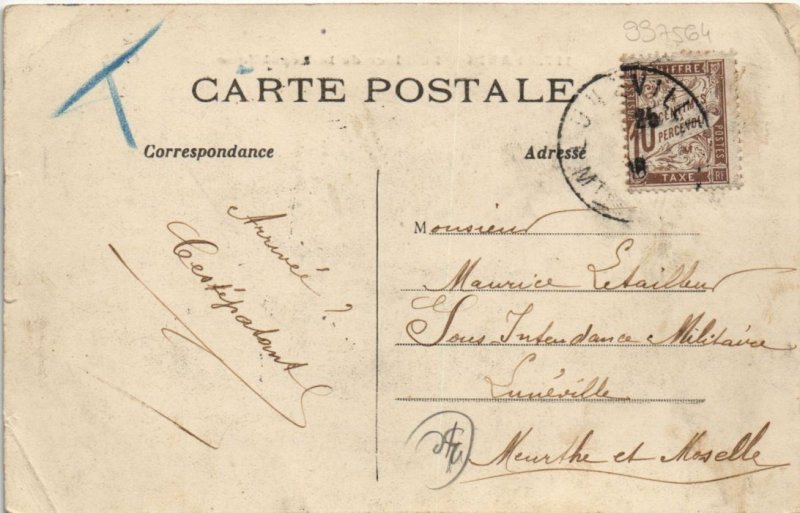 997564
CARTE POSTALE
Correspondance
Adresse
CHIFFRE
10 CENTIMES
PERCEVOIR
POSTES
TAXE RF
LUNEVILLE
25
Arrivée ?.
C'estépatant
Monsieur
Maurice Letailleur
Sous Intendance Militaire
Lunéville
Meurthe et Moselle
T